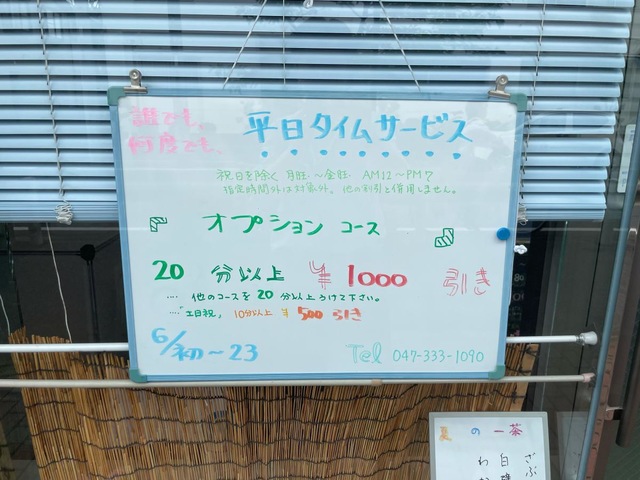 誰でも、
何度でも、
平日タイムサービス
祝日を除く 月曜～金曜 AM12～PM7
指定時間外は対象外。他の割引と併用しません。
オプション コース
20 分以上 ¥1000 引き
‥‥ 他のコースを20分以上うけて下さい。
‥‥ 土日祝, 10分以上 ¥500 引き
6/初～23
Tel 047-333-1090
夏の一茶
ざぶ
白
わ